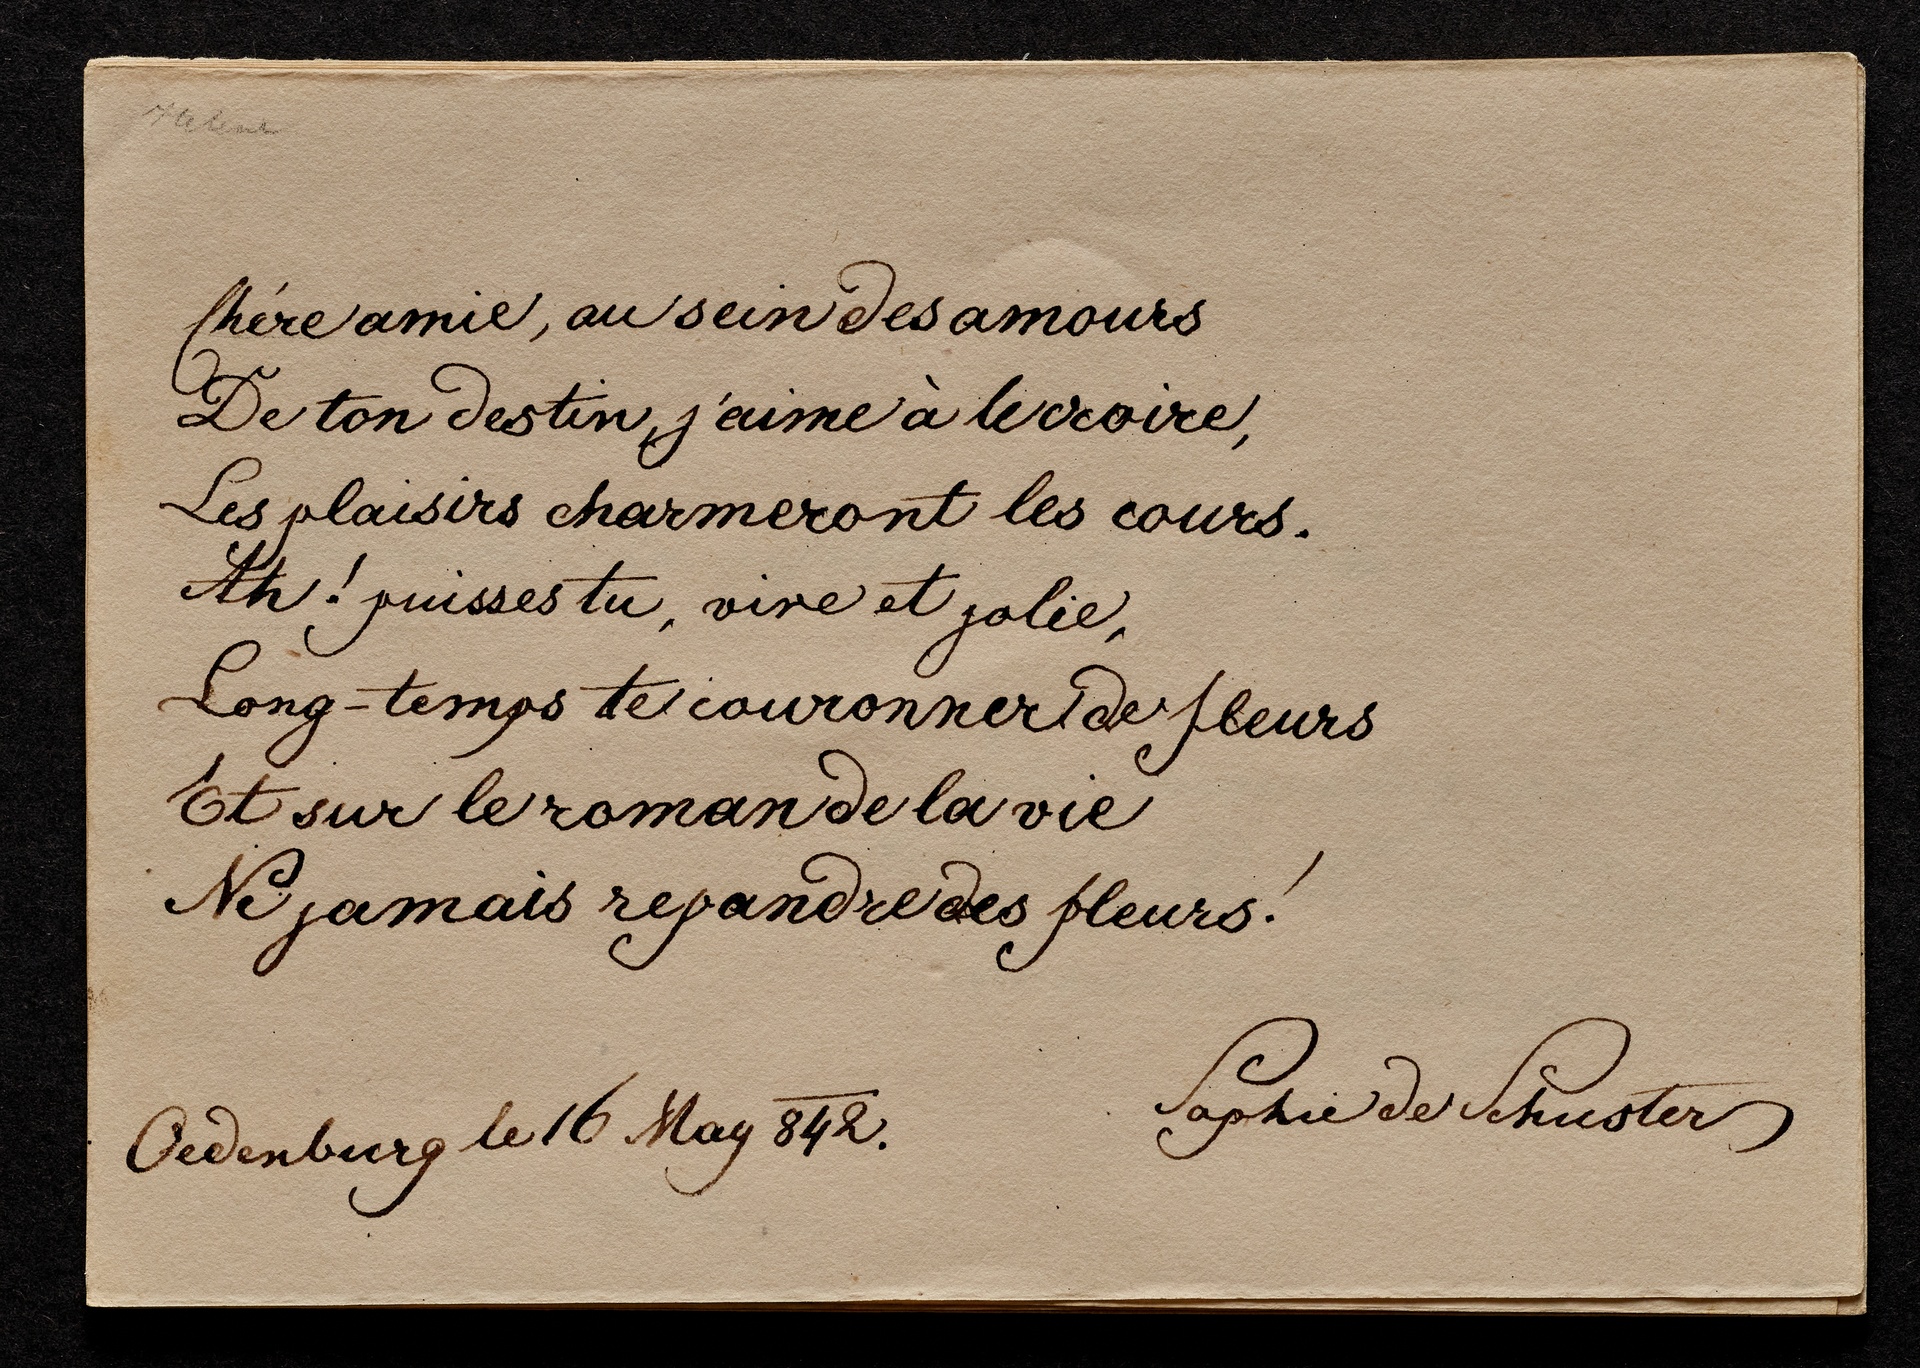 Chére amie, au sein des amours
De ton destin, j'aime à le croire,
Les plaisirs charmeront les cours.
Ah! puisses tu, vive et jolie,
Long-temps te couronner de fleurs
Et sur le roman de la vie
Ne jamais repandre des fleurs!
Sophie de Schuster
Oedenburg le 16 May 842.